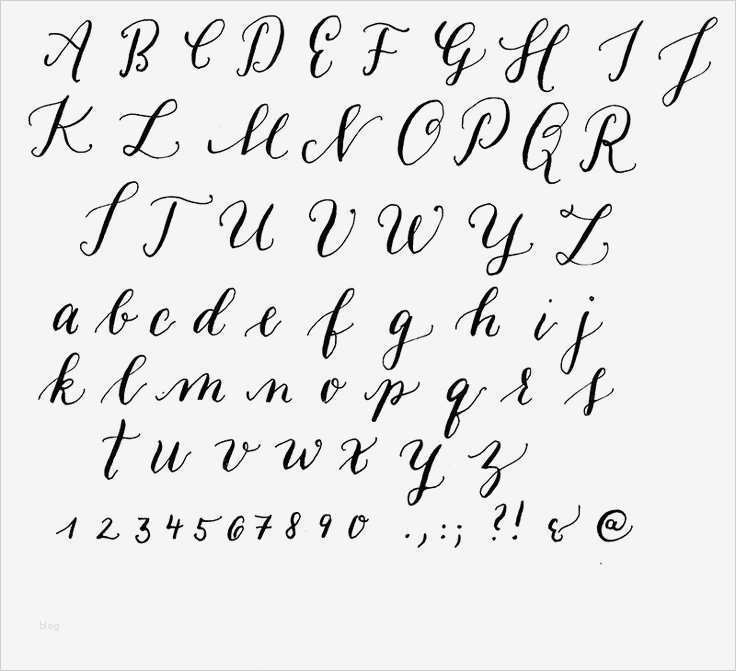 A B C D E F G H I J
K L M N O P Q R
S T U V W Y Z
a b c d e f g h i j
k l m n o p q r s
t u v w x y z
1 2 3 4 5 6 7 8 9 0 . , : ; ? ! & @
blog